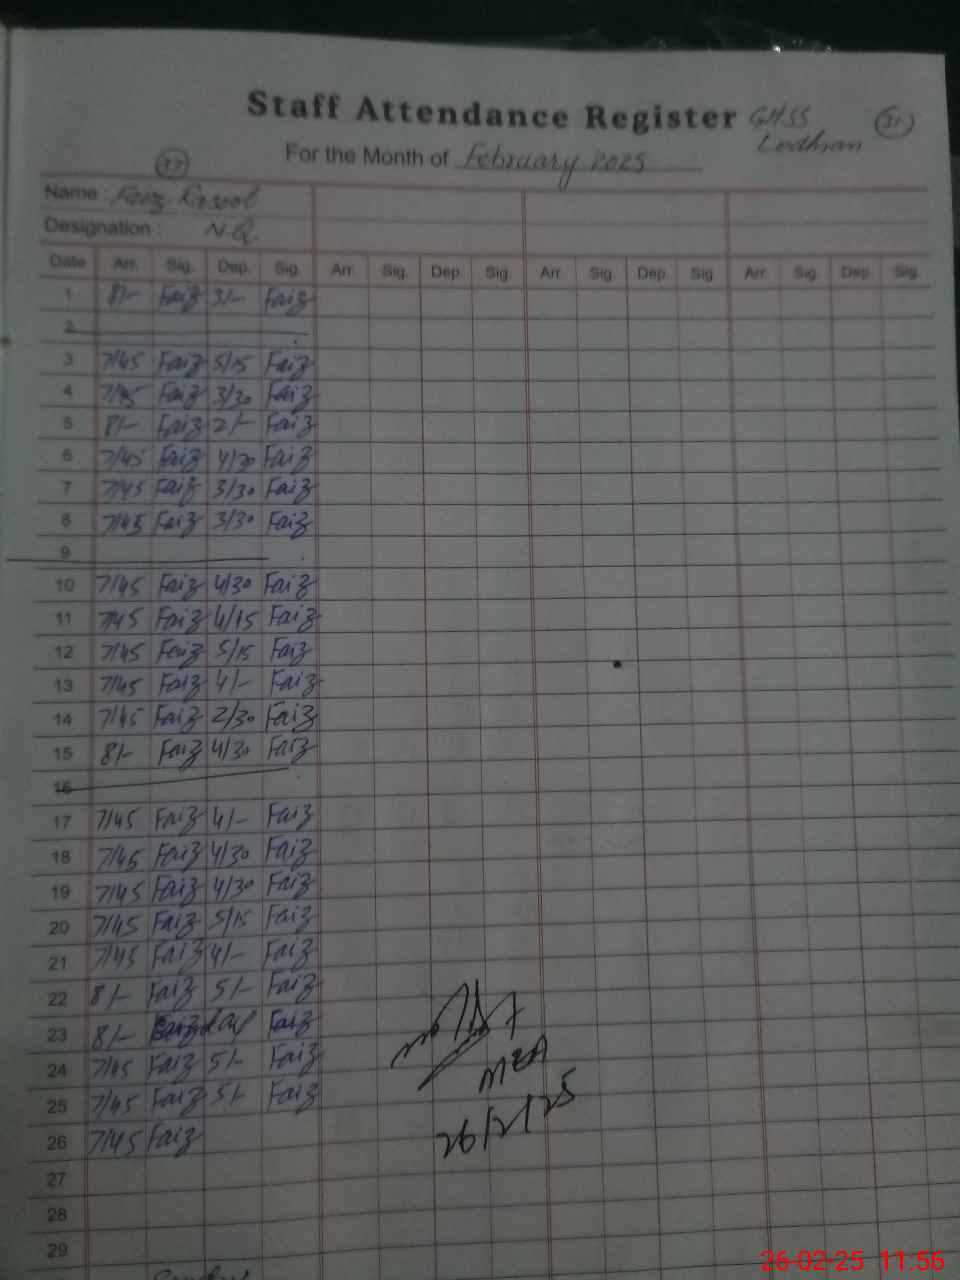 Staff Attendance Register GHSS
Lodhran
21
For the Month of February 2025
27
Name : Faiz Rasool
Designation : N-Q
Date Arr. Sig. Dep. Sig. Arr. Sig. Dep. Sig. Arr. Sig. Dep. Sig Arr. Sig. Dep Sig.
1 8/- Faiz 3/- Faiz
2
3 7/45 Faiz 5/15 Faiz
4 7/45 Faiz 3/30 Faiz
5 8/- Faiz 2/- Faiz
6 7/45 Faiz 4/30 Faiz
7 7/45 Faiz 3/30 Faiz
8 7/45 Faiz 3/30 Faiz
9
10 7/45 Faiz 4/30 Faiz
11 7/45 Faiz 4/15 Faiz
12 7/45 Faiz 5/15 Faiz
13 7/45 Faiz 4/- Faiz
14 7/45 Faiz 2/30 Faiz
15 8/- Faiz 4/30 Faiz
16
17 7/45 Faiz 4/- Faiz
18 7/45 Faiz 4/30 Faiz
19 7/45 Faiz 4/30 Faiz
20 7/45 Faiz 5/15 Faiz
21 7/45 Faiz 4/- Faiz
22 8/- Faiz 5/- Faiz
23 8/- Faiz
24 7/45 Faiz 5/- Faiz
25 7/45 Faiz 5/- Faiz
MEA
26/2/25
26 7/45 Faiz
27
28
29
26-02-25 11:56